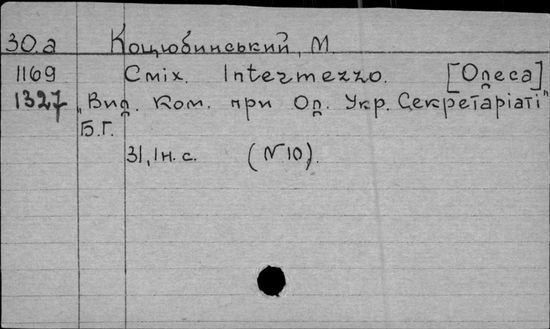 30.а Коцюбинський, М.
1169 Сміх. Intermezzo. [Одеса]
1327 „Вид. Ком. при Од. Укр. Секретаріаті"
Б.Г.
31, Ін. с. (N10).